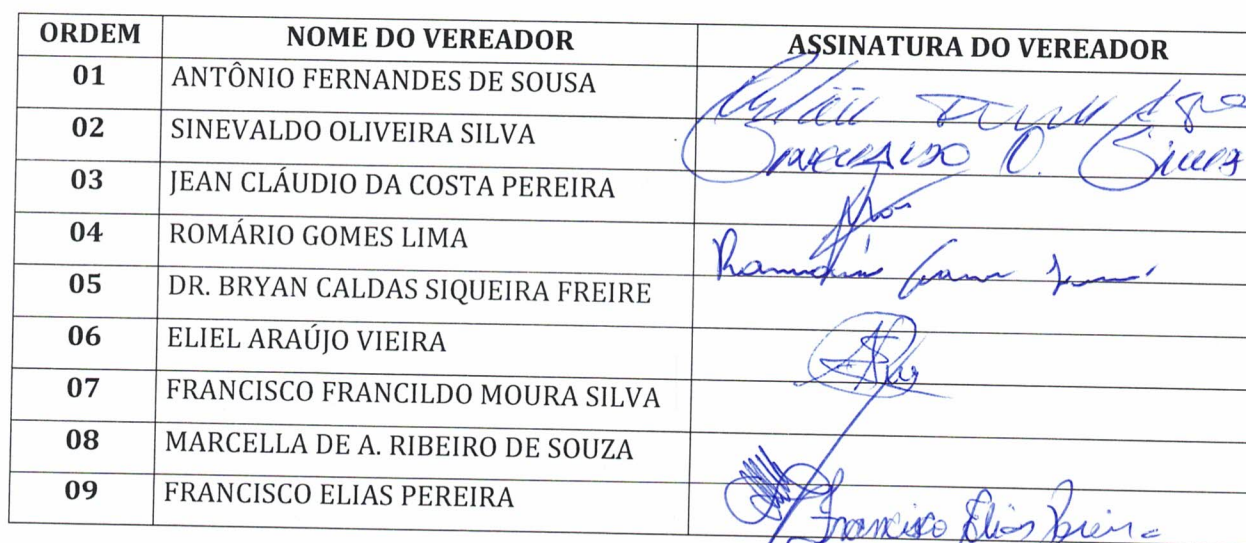 ORDEM NOME DO VEREADOR ASSINATURA DO VEREADOR
01 ANTÔNIO FERNANDES DE SOUSA
02 SINEVALDO OLIVEIRA SILVA O.
03 JEAN CLÁUDIO DA COSTA PEREIRA
04 ROMÁRIO GOMES LIMA
05 DR. BRYAN CALDAS SIQUEIRA FREIRE
06 ELIEL ARAÚJO VIEIRA
07 FRANCISCO FRANCILDO MOURA SILVA
08 MARCELLA DE A. RIBEIRO DE SOUZA
09 FRANCISCO ELIAS PEREIRA Francisco Elias Pereira